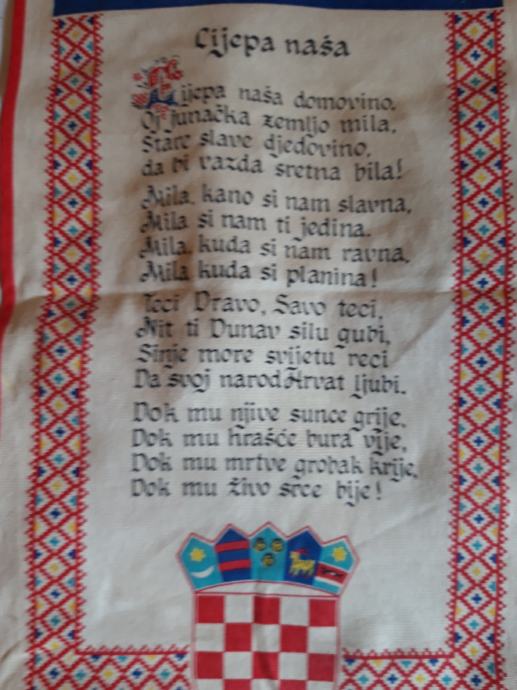 Lijepa naša
Lijepa naša domovino,
Oj junačka zemljo mila,
Stare slave djedovino,
da bi vazda sretna bila!
Mila, kano si nam slavna,
Mila si nam ti jedina.
Mila, kuda si nam ravna,
Mila, kuda si planina!
Teci Dravo, Savo teci,
Nit ti Dunav silu gubi,
Sinje more svijetu reci
Da svoj narod Hrvat ljubi.
Dok mu njive sunce grije,
Dok mu hrašće bura vije,
Dok mu mrtve grobak krije,
Dok mu živo srce bije!